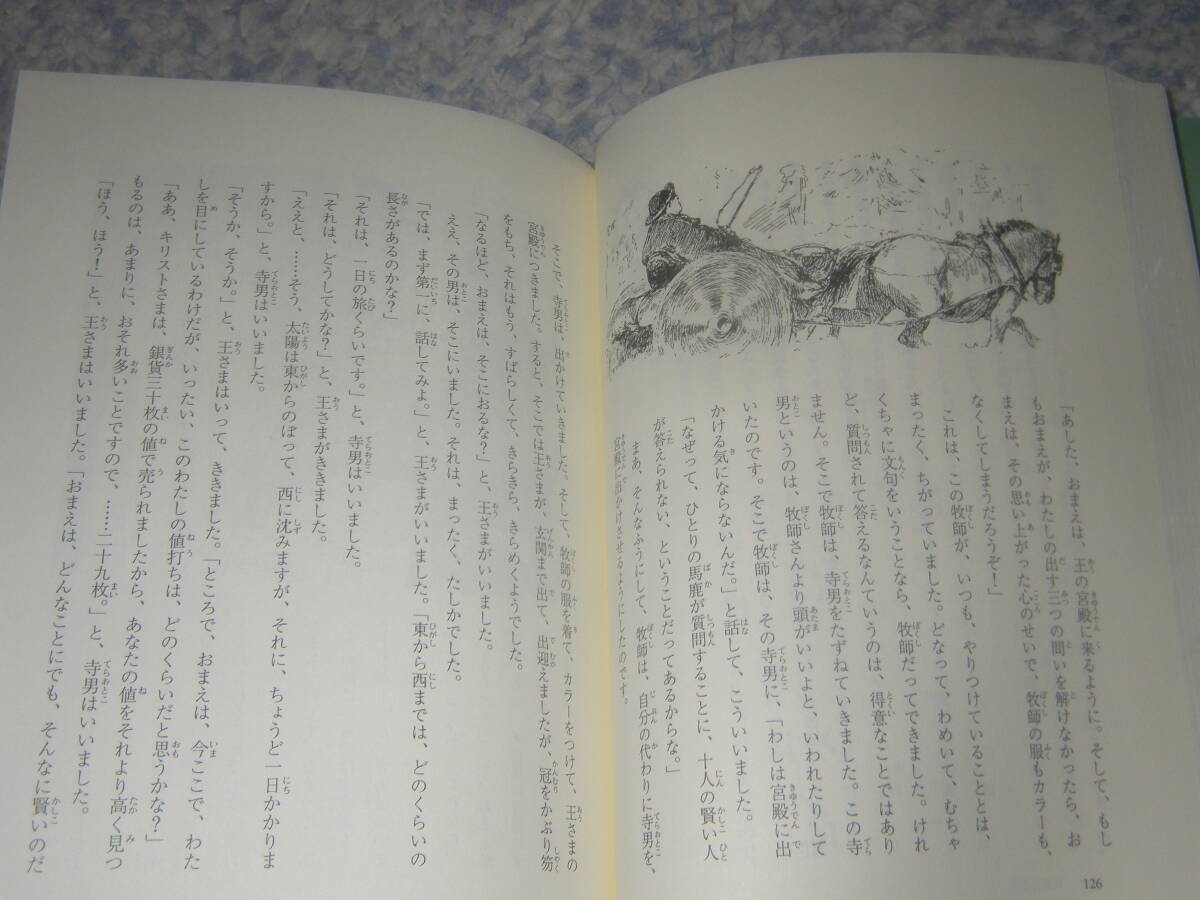 「あした、おまえは、王の宮殿に来るように。そして、もし
もおまえが、わたしの出す三つの問いを解けなかったら、お
まえは、その思い上がった心のせいで、牧師の服もカラーも、
なくしてしまうだろうぞ！」
これは、この牧師が、いつも、やりつけていることとは、
まったく、ちがっていました。どなって、わめいて、むちゃ
くちゃに文句をいうことなら、牧師だってできました。けれ
ど、質問されて答えるなんていうのは、得意なことではあり
ません。そこで牧師は、寺男をたずねていきました。この寺
男というのは、牧師さんより頭がいいよと、いわれたりして
いたのです。そこで牧師は、その寺男に、「わしは宮殿に出
かける気にならないんだ。」と話して、こういいました。
「なぜって、ひとりの馬鹿が質問することに、十人の賢い人
が答えられない、ということだってあるからな。」
まあ、そんなふうにして、牧師は、自分の代わりに寺男を、
宮殿に出かけさせるようにしたのです。
126
そこで、寺男は、出かけていきました。そして、牧師の服を着て、カラーをつけて、王さまの
宮殿につきました。すると、そこでは王さまが、玄関まで出て、出迎えましたが、冠をかぶり笏
をもち、それはもう、すばらしくて、きらきら、きらめくようでした。
「なるほど、おまえは、そこにおるな？」と、王さまがいいました。
ええ、その男は、そこにいました。それは、まったく、たしかでした。
「では、まず第一に、話してみよ。」と、王さまがいいました。「東から西までは、どのくらいの
長さがあるのかな？」
「それは、一日の旅くらいです。」と、寺男はいいました。
「それは、どうしてかな？」と、王さまがききました。
「ええと、……そう、太陽は東からのぼって、西に沈みますが、それに、ちょうど一日かかりま
すから。」と、寺男はいいました。
「そうか、そうか。」と、王さまはいって、ききました。「ところで、おまえは、今ここで、わた
しを目にしているわけだが、いったい、このわたしの値打ちは、どのくらいだと思うかな？」
「ああ、キリストさまは、銀貨三十枚の値で売られましたから、あなたの値をそれより高く見つ
もるのは、あまりに、おそれ多いことですので、……二十九枚。」と、寺男はいいました。
「ほう、ほう！」と、王さまはいいました。「おまえは、どんなことにでも、そんなに賢いのだ